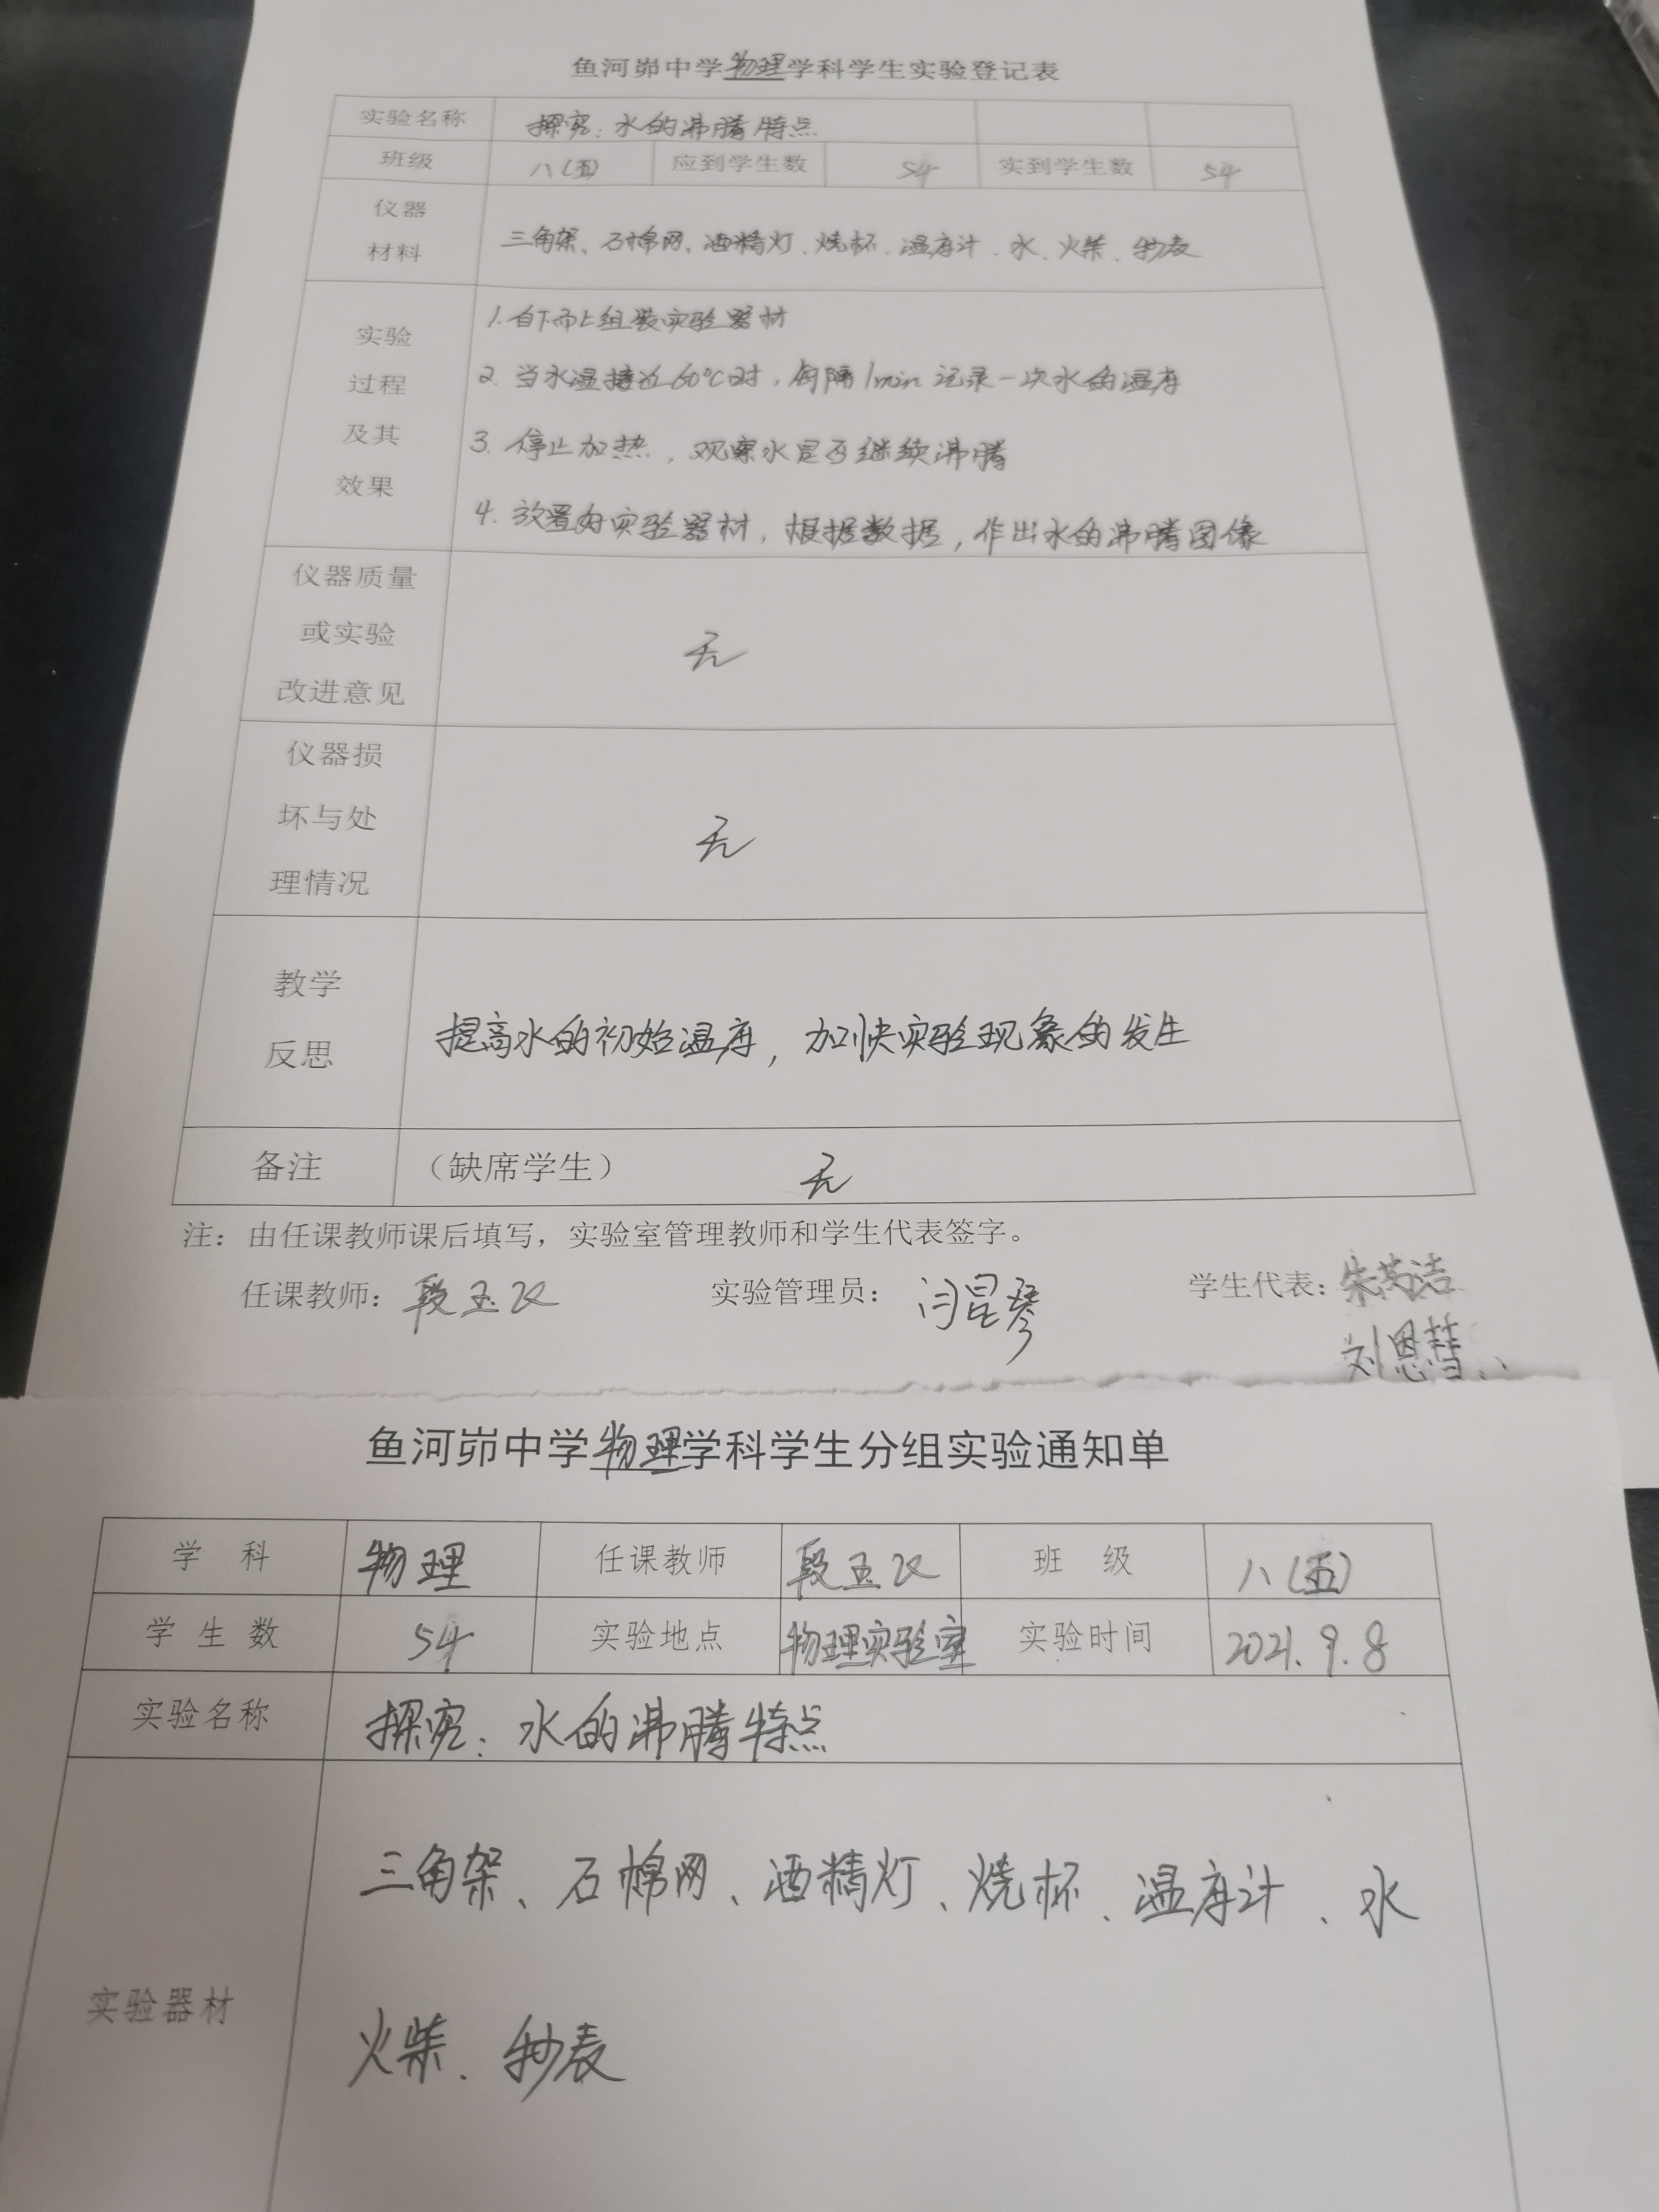 鱼河峁中学物理学科学生实验登记表
实验名称 探究：水的沸腾特点
班级 八(五) 应到学生数 54 实到学生数 54
仪器
材料
三角架、石棉网、酒精灯、烧杯、温度计、水、火柴、秒表
实验
过程
及其
效果
1.自下而上组装实验器材
2.当水温接近60℃时，每隔1min记录一次水的温度
3.停止加热，观察水是否继续沸腾
4.放置好实验器材，根据数据，作出水的沸腾图像
仪器质量
或实验
改进意见
无
仪器损
坏与处
理情况
无
教学
反思
提高水的初始温度，加快实验现象的发生
备注 （缺席学生） 无
注：由任课教师课后填写，实验室管理教师和学生代表签字。
任课教师：段玉 实验管理员：闫昆琴 学生代表：朱 洁
刘恩慧
鱼河峁中学物理学科学生分组实验通知单
学 科 物理 任课教师 段玉 班 级 八(五)
学生数 54 实验地点 物理实验室 实验时间 2021.9.8
实验名称 探究：水的沸腾特点
实验器材
三角架、石棉网、酒精灯、烧杯、温度计、水
火柴、秒表